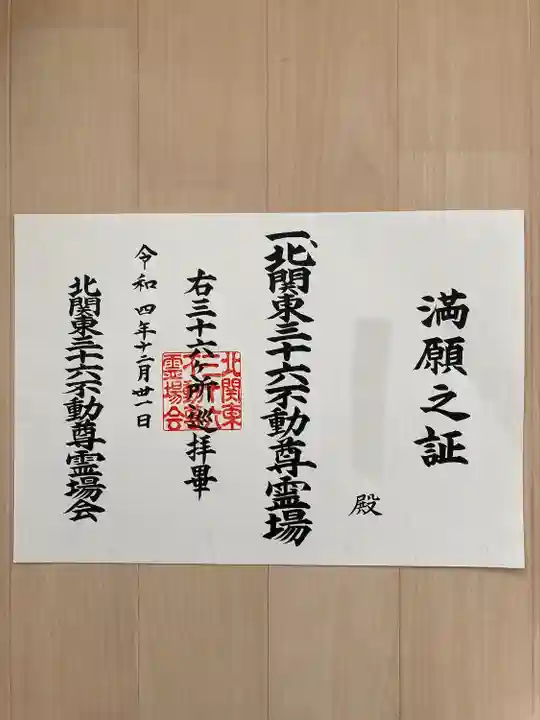 満願之証
殿
一、北関東三十六不動尊霊場
右三十六ヶ所巡拝畢
令和四年十二月卅一日
北関東三十六不動尊霊場会
北関東
三十六
不動尊
霊場会